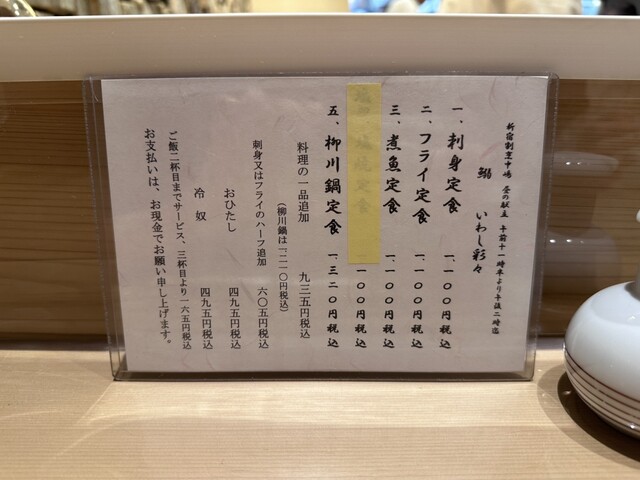 新宿割烹中嶋 昼の献立 午前十一時半より午後二時迄
鰯 いわし彩々
一、刺身定食 一、一〇〇円税込
二、フライ定食 一、一〇〇円税込
三、煮魚定食 一、一〇〇円税込
塩焼定食 一、一〇〇円税込
五、柳川鍋定食 一、三二〇円税込
料理の一品追加 九三五円税込
(柳川鍋は一二一〇円税込)
刺身又はフライのハーフ追加 六〇五円税込
おひたし 四九五円税込
冷奴 四九五円税込
ご飯二杯目までサービス、三杯目より一六五円税込
お支払いは、お現金でお願い申し上げます。